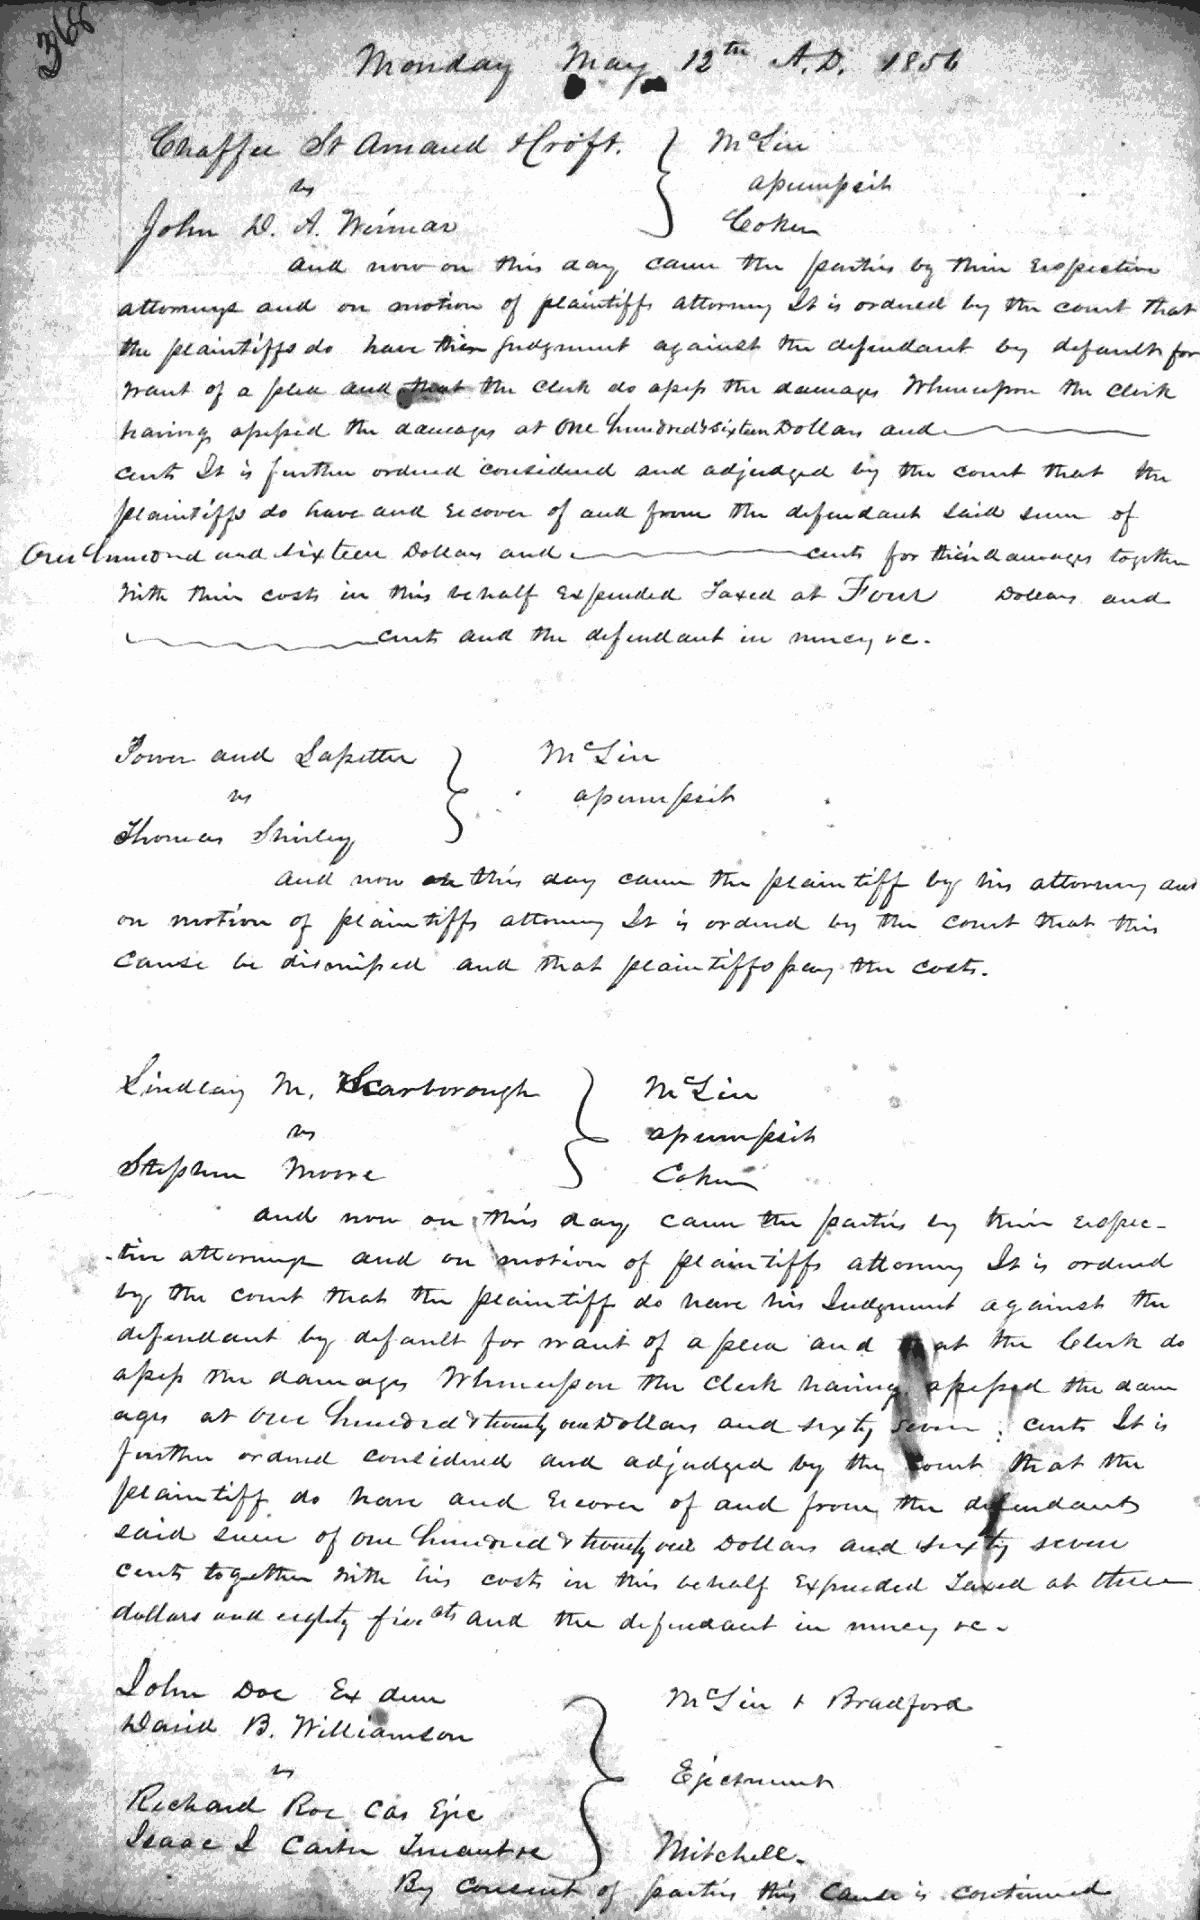 368
Monday May 12th A.D. 1856
Chaffee St Amand & Croft. } McLin
vs assumpsit
John D. A. Coker
and now on this day came the parties by their respective
attorneys and on motion of plaintiffs attorney It is ordered by the court that
the plaintiffs do have their judgment against the defendant by default for
want of a plea and that the clerk do assess the damages Whereupon the clerk
having assessed the damages at One hundred & sixteen Dollars and
cents It is further ordered considered and adjudged by the court that the
plaintiffs do have and recover of and from the defendant said sum of
One hundred and sixteen Dollars and cents for their damages together
with their costs in this behalf Expended Taxed at Four Dollars and
cents and the defendant in mercy &c.
Tower and } McLin
vs assumpsit
Thomas Shirley
and now on this day came the plaintiff by his attorney and
on motion of plaintiffs attorney It is ordered by the court that this
cause be dismissed and that plaintiffs pay the costs.
Lindsay M. Scarborough } McLin
vs assumpsit
Stephen Moore Coker
and now on this day came the parties by their respec-
-tive attorneys and on motion of plaintiffs attorney It is ordered
by the court that the plaintiff do have his Judgment against the
defendant by default for want of a plea and that the Clerk do
assess the damages Whereupon the Clerk having assessed the dam
ages at One hundred & twenty one Dollars and sixty seven cents It is
further ordered considered and adjudged by the court that the
plaintiff do have and recover of and from the defendants
said sum of one hundred & twenty one Dollars and sixty seven
cents together with his costs in this behalf Expended Taxed at three
dollars and eighty five cts and the defendant in mercy &c.
John Doe Ex dem } McLin & Bradford
David B. Williamson
vs Ejectment
Richard Roe Cas Ejec
Isaac I Carter Tenant &c Mitchell.
By consent of parties this cause is continued